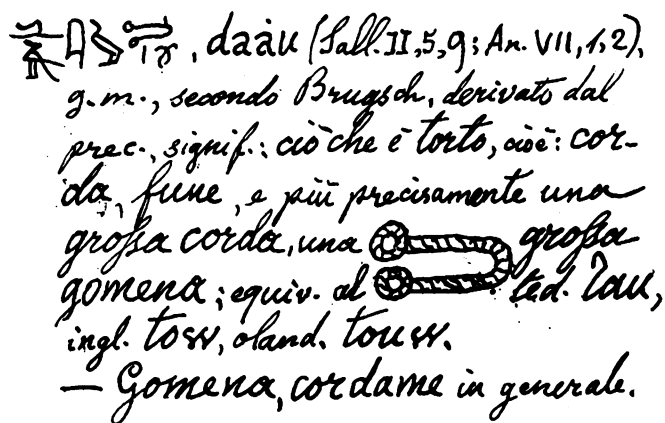 , daȧu (Sall. II, 5, 9; An. VII, 1, 2),
g. m., secondo Brugsch, derivato dal
prec., signif.: ciò che è torto, cioè: cor-
da, fune, e più precisamente una
groſsa corda, una groſsa
gomena; equiv. al ted. Tau,
ingl. tow, oland. touw.
— Gomena, cordame in generale.